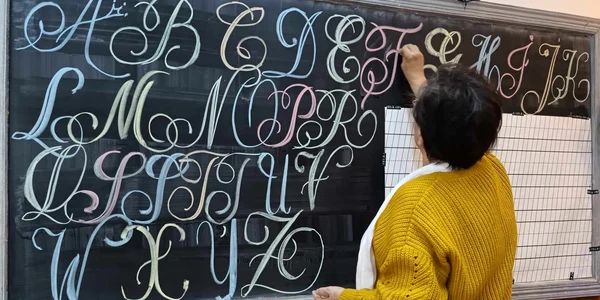 A B C D E F G H I J K
L M N O P R
Q S S T T U V
W X Y Z